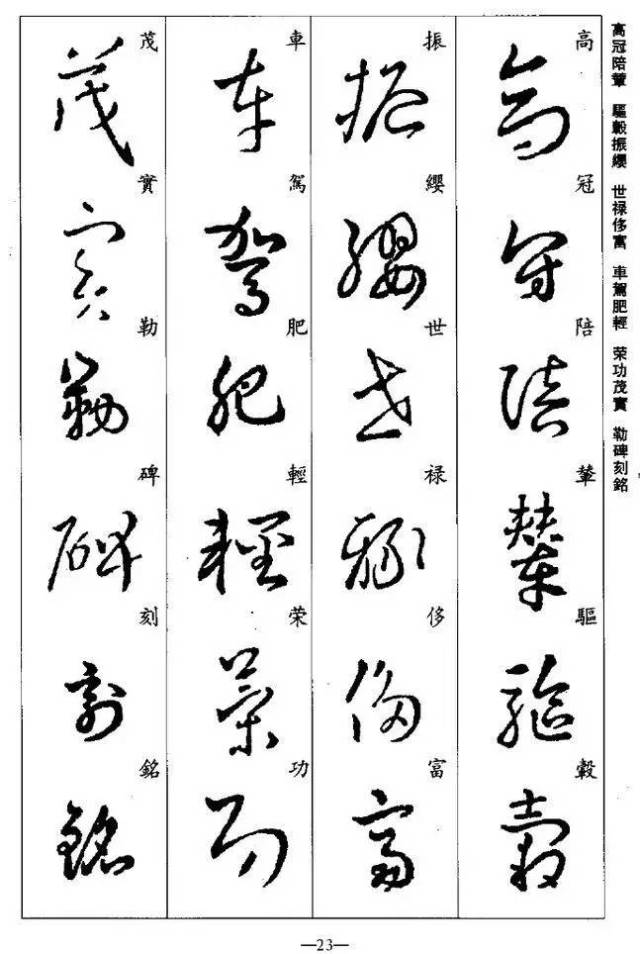 高冠陪輦 驅轂振纓 世禄侈富 車駕肥輕 荣功茂實 勒碑刻銘
高冠陪輦驅轂
振纓世禄侈富
車駕肥輕荣功
茂實勒碑刻銘
—23—